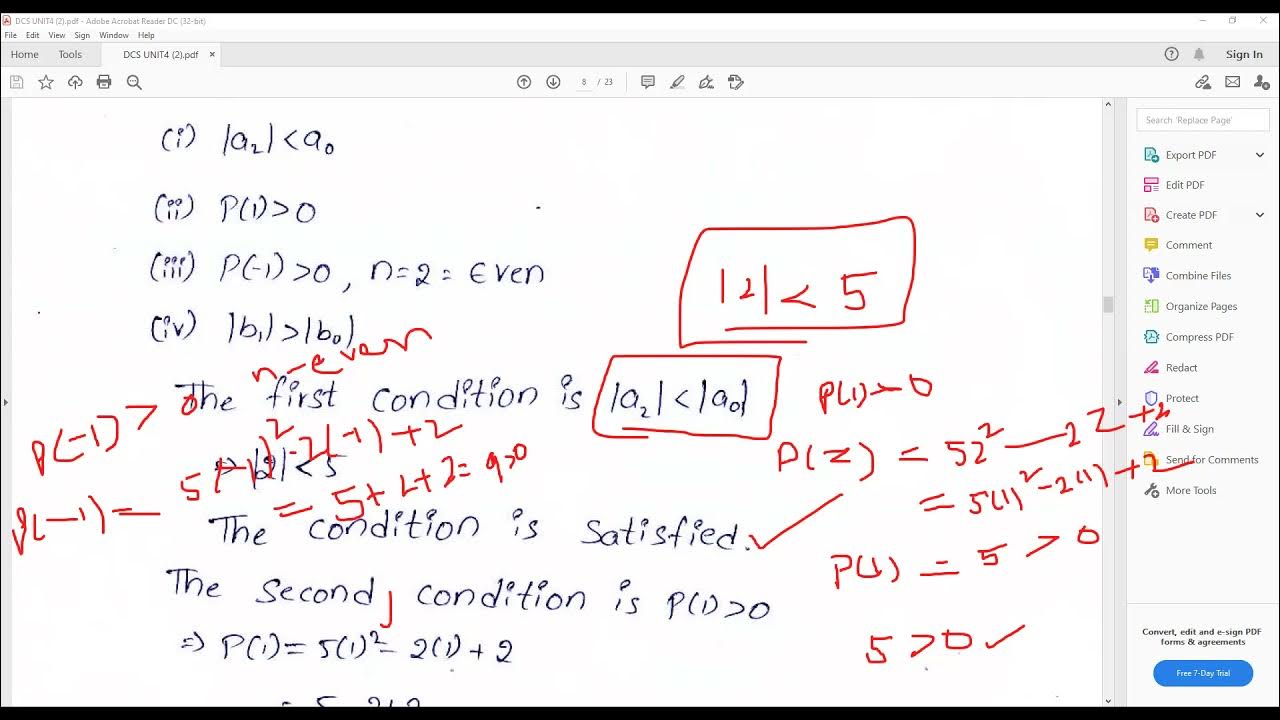 DCS UNIT4 (2).pdf - Adobe Acrobat Reader DC (32-bit)
File Edit View Sign Window Help
Home Tools DCS UNIT4 (2).pdf × Sign In
8 / 23
(i) |a₂| < a₀
(ii) P(1) > 0
(iii) P(-1) > 0, n=2 = Even
(iv) |b₁| > |b₀|
|2| < 5
n-even
The first condition is |a₂| < |a₀|
P(1) > 0
P(-1) > 0
P(z) = 5z² - 2z + 2
⇒ |2| < 5
P(-1) = 5(-1)² - 2(-1) + 2
= 5(1)² - 2(1) + 2
= 5 + 2 + 2 = 9 > 0
The condition is satisfied.
P(1) = 5 > 0
The second condition is P(1) > 0
5 > 0 ✓
⇒ P(1) = 5(1)² - 2(1) + 2
= 5 - 2 + 2
Search 'Replace Page'
Export PDF
Edit PDF
Create PDF
Comment
Combine Files
Organize Pages
Compress PDF
Redact
Protect
Fill & Sign
Send for Comments
More Tools
Convert, edit and e-sign PDF
forms & agreements
Free 7-Day Trial